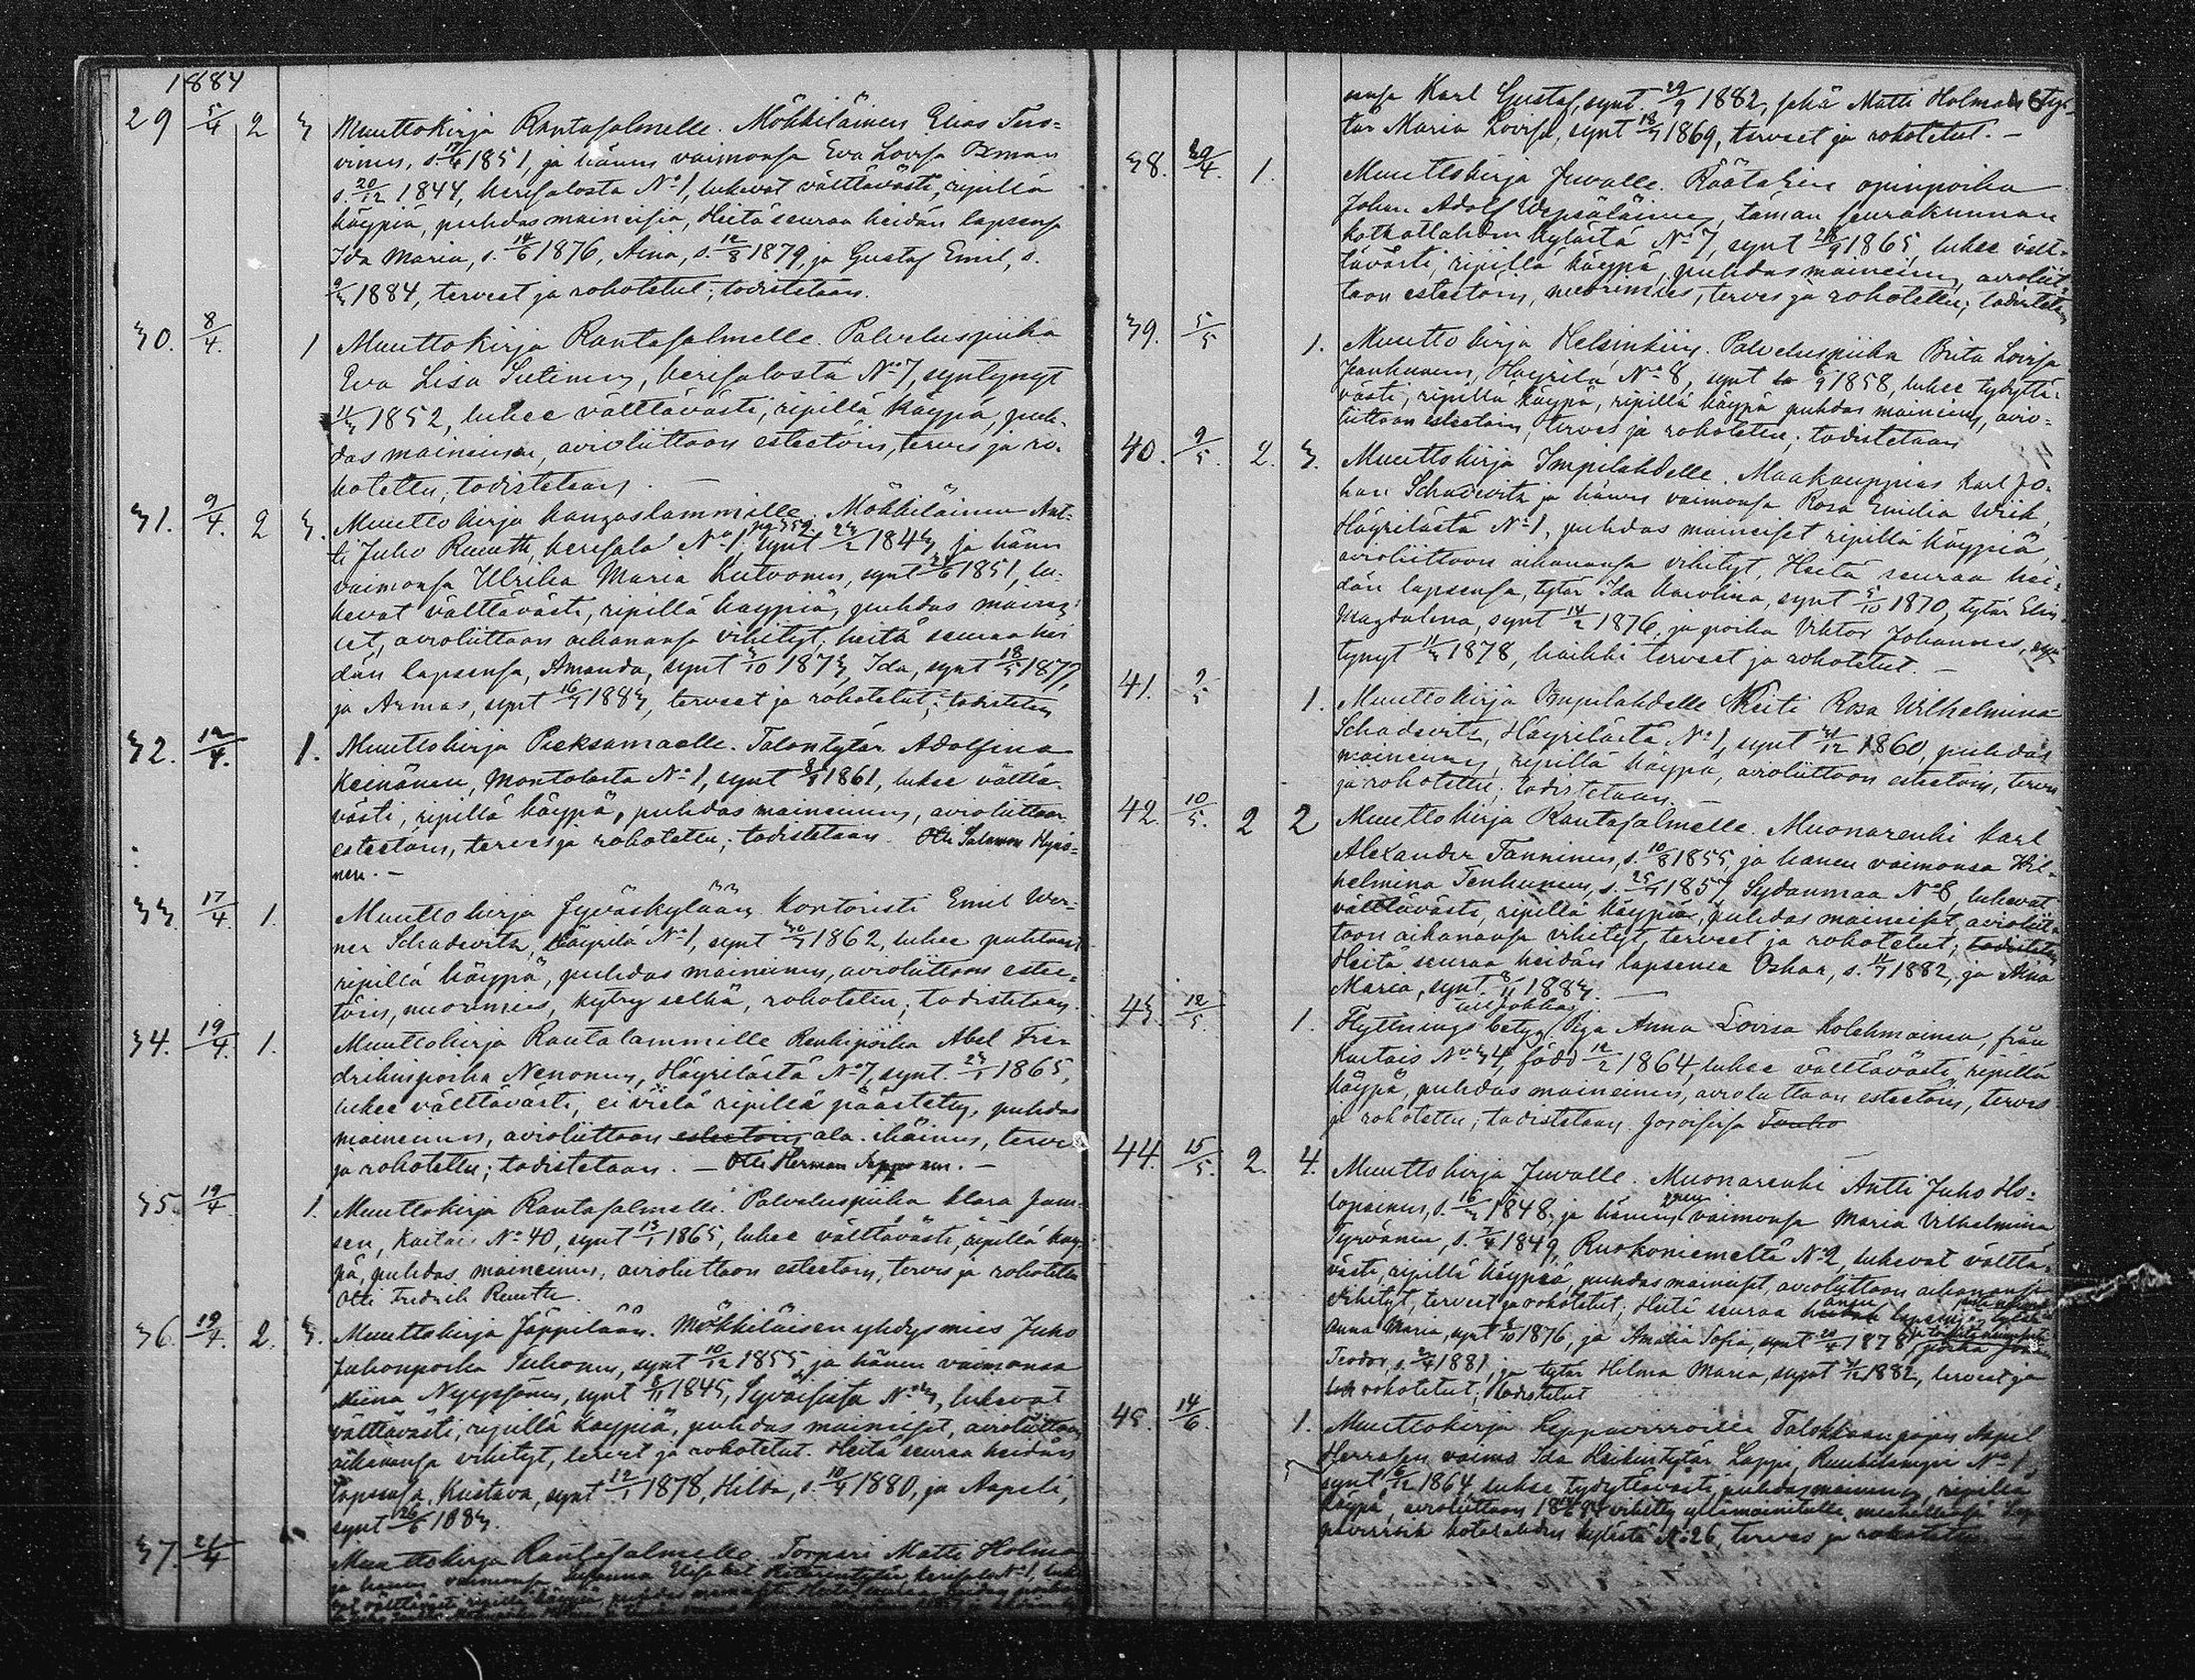 1884
29 5/4 2 3 Muuttokirja Rantasalmelle. Mökkiläinen Elias Tuo-
vinen, s. 17/4 1851, ja hänen vaimonsa Eva Lovisa
s. 20/12 1844, Kerisalosta No 1, lukevat välttävästi, ripillä
käypiä, puhdas maineisia, Heitä seuraa heidän lapsensa
Ida Maria, s. 14/6 1876, Aina, s. 12/8 1879, ja Gustaf Emil, s.
1884, terveet ja rokotetut; todistetaan.
30. 8/4. 1 Muuttokirja Rantasalmelle. Palveluspiika
Eva Lisa Sutinen, Kerisalosta No 7, syntynyt
1852, lukee välttävästi, ripillä käypä, puh-
das maineinen, avioliittoon esteetöin, terve ja ro-
kotettu, todistetaan. —
31. 9/4. 2 3. Muuttokirja Kangaslammille. Mökkiläinen Ant-
ti Juho Reuutti, Kerisalo No 1, pg 359, synt 23/2 1843, ja hänen
vaimonsa Ulrika Maria Kutvonen, synt 1851, lu-
kevat välttävästi, ripillä käypiä, puhdas mainei-
set, avioliittoon aikananse vihityt, heitä seuraa hei
dän lapsensa, Amanda, synt 3/10 1873, Ida, synt 18/5 1877,
ja Armas, synt 16/3 1883, terveet ja rokotetut; todistetan
32. 12/4. 1. Muuttokirja Pieksamaalle. Talontytär Adolfina
Keinänen, Montolasta No 1, synt 1861, lukee välttä-
västi, ripillä käypä, puhdas maineinen, avioliittoon
esteetöin, terve ja rokotettu; todistetaan. Otti Salomon Hyvö-
nen. —
33. 17/4 1. Muuttokirja Jyväskylään Kontoristi Emil Wer-
ner Schadevitz, Häyrilä No 1, synt 1862, lukee puhtaasti
ripillä käypä, puhdas maineinen, avioliittoon estee-
töin, nuorimies, kytry selkä, rokotettu; todistetaan.
34. 19/4. 1. Muuttokirja Rantalammille Renkipoika Abel Fre-
drikinpoika Nenonen, Häyrilästä No 7, synt. 23/1 1865,
lukee välttävästi, ei vielä ripillä päästetty, puhdas
maineinen, avioliittoon esteetöin ala-ikäinen, terve
ja rokotettu; todistetaan. — Otti Herman Sapponen. —
35. 19/4 1. Muuttokirja Rantasalmelle. Palveluspiika Klara Jan-
sen, Kaitais No 40, synt 13/1 1865, lukee välttävästi, ripillä käy-
pä, puhdas maineinen, avioliittoon esteetöin, terve ja rokotettu
Otti Fredrik Reuutti.
36. 19/4. 2. 3. Muuttokirja Jäppilään. Mökkiläisen yhdysmies Juho
Juhonpoika Tuhonen, synt 10/12 1855, ja hänen vaimonsa
Miina Nyyssönen, synt 8/11 1845, Syväisistä No 3, lukevat
välttävästi, ripillä käypiä, puhdas maineiset, avioliittoon
aikananse vihityt, terveet ja rokotetut. Heitä seuraa heidän
lapsensa, Kustava, synt 12/1 1878, Hilda, s. 10/4 1880, ja Aapeli,
synt 26/6 1883.
37. 26/4 Muuttokirja Rantasalmelle. Torpari Matti Holma
ja hänen vaimonsa Susanna Elisabet Kerisalo No 1, luke
vat välttävästi ripillä käypiä, puhdas maineiset. Heitä seuraa heidän poikan
sensa Karl Gustaf, synt. 29/9 1882, sekä Matti Holman tyt-
tär Maria Lovisa, synt 18/3 1869, terveet ja rokotetut. —
38. 30/4. 1. Muuttokirja Juvalle. Räätälin opinpoika
Johan Adolf Wepsäläinen, täman seurakunnan
Kotkatlahden kylästä No 7, synt 28/9 1865, lukee vält-
tävästi, ripillä käypä, puhdas maineinen, avioliit-
toon esteetöin, nuorimies, terve ja rokotettu; todistetaan
39. 5/5 1. Muuttokirja Helsinkiin. Palveluspiika Brita Lovisa
Jeuhunen, Häyrilä No 8, synt 6/9 1858, lukee tydyttä-
västi, ripillä käypä, ripillä käypä puhdas maineinen, avio-
liittoon esteetöin, terve ja rokotettu; todistetaan
40. 9/5. 2. 3. Muuttokirja Impilahdelle. Maakauppias Karl Jo-
han Schadevitz ja hänen vaimonsa Rosa Emilia Wiik,
Häyrilästä No 1, puhdas maineiset ripillä käypiä,
avioliittoon aikananse vihityt, Heitä seuraa hei-
dän lapsensa, tytär Ida Karolina, synt 5/10 1870, tytär Elin
Magdalena, synt 14/2 1876, ja poika Viktor Johannes, syn
tynyt 11/3 1878, kaikki terveet ja rokotetut. —
41. 9/5 1. Muuttokirja Impilahdelle Neiti Rosa Wilhelmina
Schadevitz, Häyrilästä No 1, synt 31/12 1860, puhdas
maineinen, ripillä käypä, avioliittoon esteetöin, terve
ja rokotettu; todistetaan. —
42. 10/5. 2 2 Muuttokirja Rantasalmelle. Muonarenki Karl
Alexander Tanninen, s. 10/8 1855, ja hänen vaimonsa Wil-
helmina Tenhunen, s. 1857, Sydänmaa No 8, lukevat
välttävästi, ripillä käypiä, puhdas maineiset, avioliit-
toon aikananse vihityt, terveet ja rokotetut; todistetan
Heitä seuraa heidän lapsensa Oskar, s. 1882, ja Mina
Maria, synt. 8/11 1883. —
43. 12/5. till Jokkas
1. Flyttningsbetyg Piga Anna Lovisa Kolehmainen, från
Kaitais No 34, född 12/2 1864, lukee välttävästi, ripillä
käypä, puhdas maineinen, avioliittoon esteetöin, terve
ja rokotettu; todistetaan. Joroisissa Touko
44. 15/5. 2. 4. Muuttokirja Juvalle. Muonarenki Antti Juho Ho-
lopainen, s. 16/3 1848, ja hänen 2nen vaimonsa Maria Vilhelmina
Tyrväinen, s. 7/4 1849, Ruokoniemeltä No 2, lukevat välttä-
västi, ripillä käypiä, puhdas maineiset, avioliittoon aikananse
vihityt, terveet ja rokotetut; Heitä seuraa hänen lapsensa tytär
Anna Maria, synt 8/10 1876, ja Amalia Sofia, synt 20/4 1878, poika Johan
Teodor, s. 2/4 1881, ja tytär Hilma Maria, synt 1882, terveet ja
rokotetut; todistetut
45. 14/6. 1. Muuttokirja Leppävirroille Talokkaan pojan Aapel
Herrasen vaimo Ida Heikintytär Lappi, No 1,
synt 6/12 1864, lukee tydyttävästi, puhdas maineinen, ripillä
käypä, avioliittoon vihitty yllämainitulle miehellensä Lep
pävirroilk Kotalahden kylästä No 26, terve ja rokotettu.